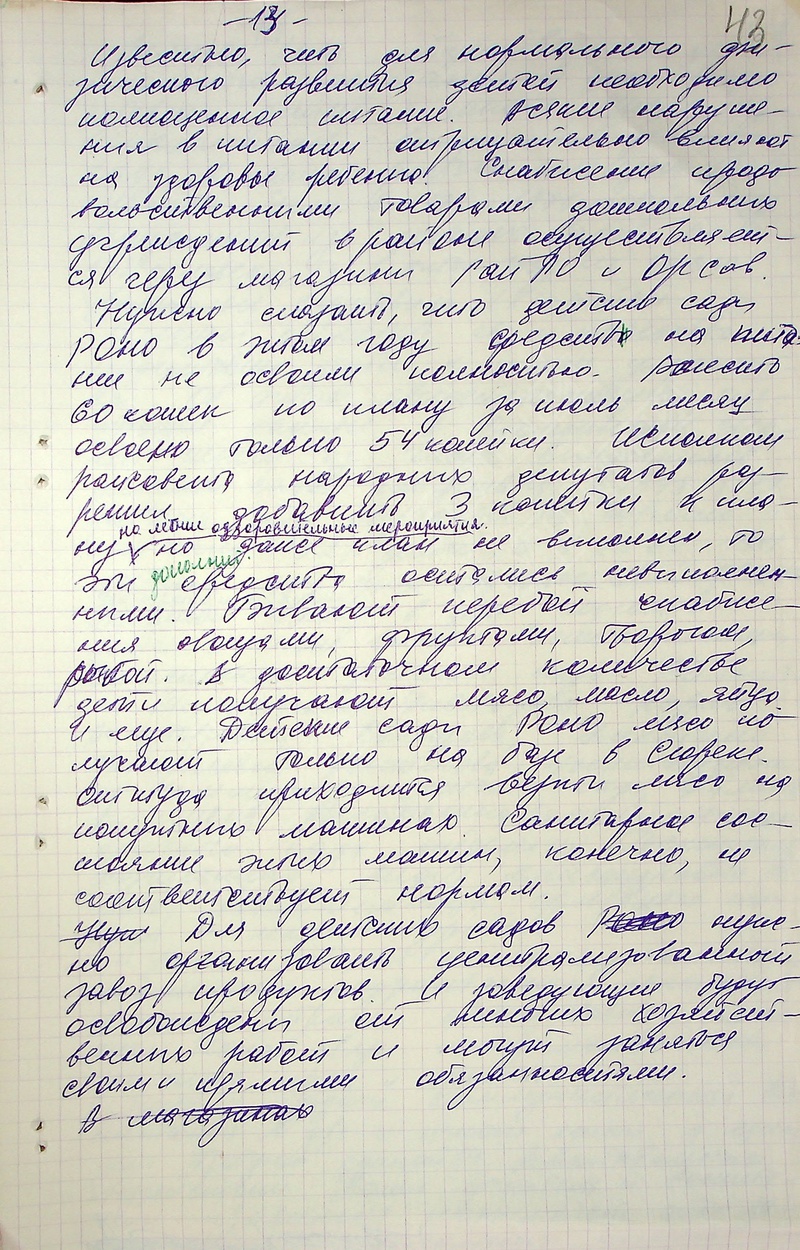 -13-
43
Известно, что для нормального фи-
зического развития детей необходимо
полноценное питание. Всякие наруше-
ния в питании отрицательно влияют
на здоровье ребенка. Снабжение продо-
вольственными товарами дошкольных
учреждений в районе осуществляет-
ся через магазины РайПО и ОРСов.
Нужно сказать, что детские сады
РОНО в этом году средства на пита-
ние не освоили полностью. Вместо
60 копеек по плану за июль месяц
освоено только 54 копейки. Исполком
райсовета народных депутатов раз-
решил добавить 3 копейки к пла-
на летние оздоровительные мероприятия.
ну, но даже план не выполнен, то
дополнит.
эти средства остались невыполнен-
ными. Бывают перебои снабже-
ния овощами, фруктами, творогом,
рыбой. В достаточном количестве
дети получают мясо, масло, яйцо
и еще. Детские сады РОНО мясо по-
лучают только на базе в
оттуда приходится везти мясо на
попутных машинах. Санитарное сос-
тояние этих машин, конечно, не
соответствует нормам.
Нуж Для детских садов РОНО нуж-
но организовать централизованный
завоз продуктов. И заведующие будут
освобождены от многих хозяйст-
венных работ и могут заняться
своими прямыми обязанностями.
В магазинах